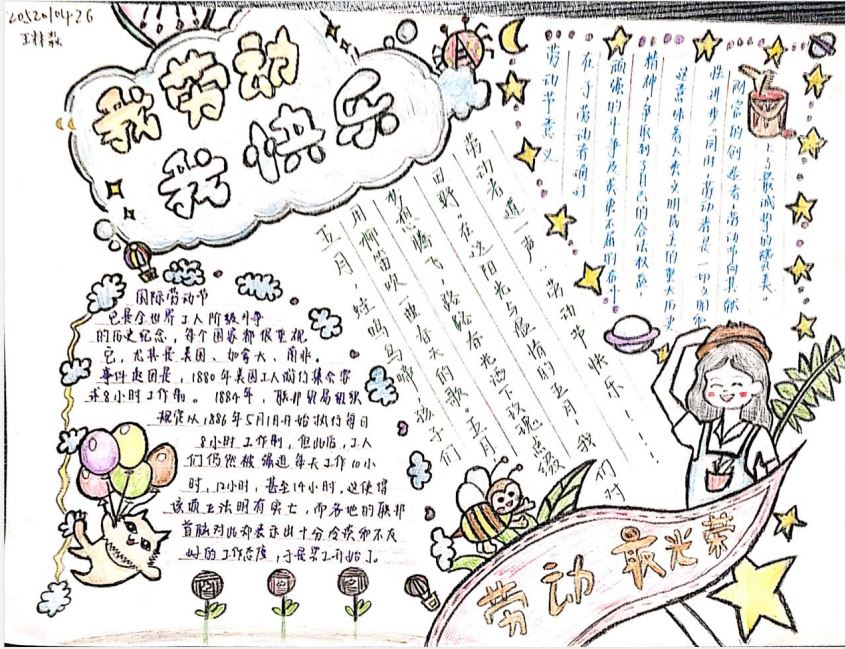 我劳动
我快乐
国际劳动节
它是全世界工人阶级斗争
的历史纪念，每个国家都很重视
它，尤其是美国、加拿大、南非。
事件起因是，1880年美国工人游行集会要
求8小时工作制。1884年，联邦贸易组织
规定从1886年5月1日开始执行每日
8小时工作制，但此后，工人
们仍然被强迫每天工作10小
时，12小时，甚至14小时。这使得
该项立法明有实亡，而各地的联邦
首脑对此却表示出十分冷淡和不友
好的工作态度，于是罢工开始了。
五月，蛙鸣鸟啼，孩子们
用柳笛吹一曲春天的歌。五月
梦想腾飞，路路春光洒下玫瑰点缀
田野。在这阳光与温情的五月！我们对
劳动者道一声：劳动节快乐！！！
劳动节意义
在于劳动者通过
顽强的斗争及英勇不屈的奋斗
精神，争取到了自己的合法权益，
这意味着人类文明民主的重大历史
性进步。同时，劳动者是一切文明和
财富的创造者，劳动节向其献
上了最诚挚的赞美。
劳动最光荣